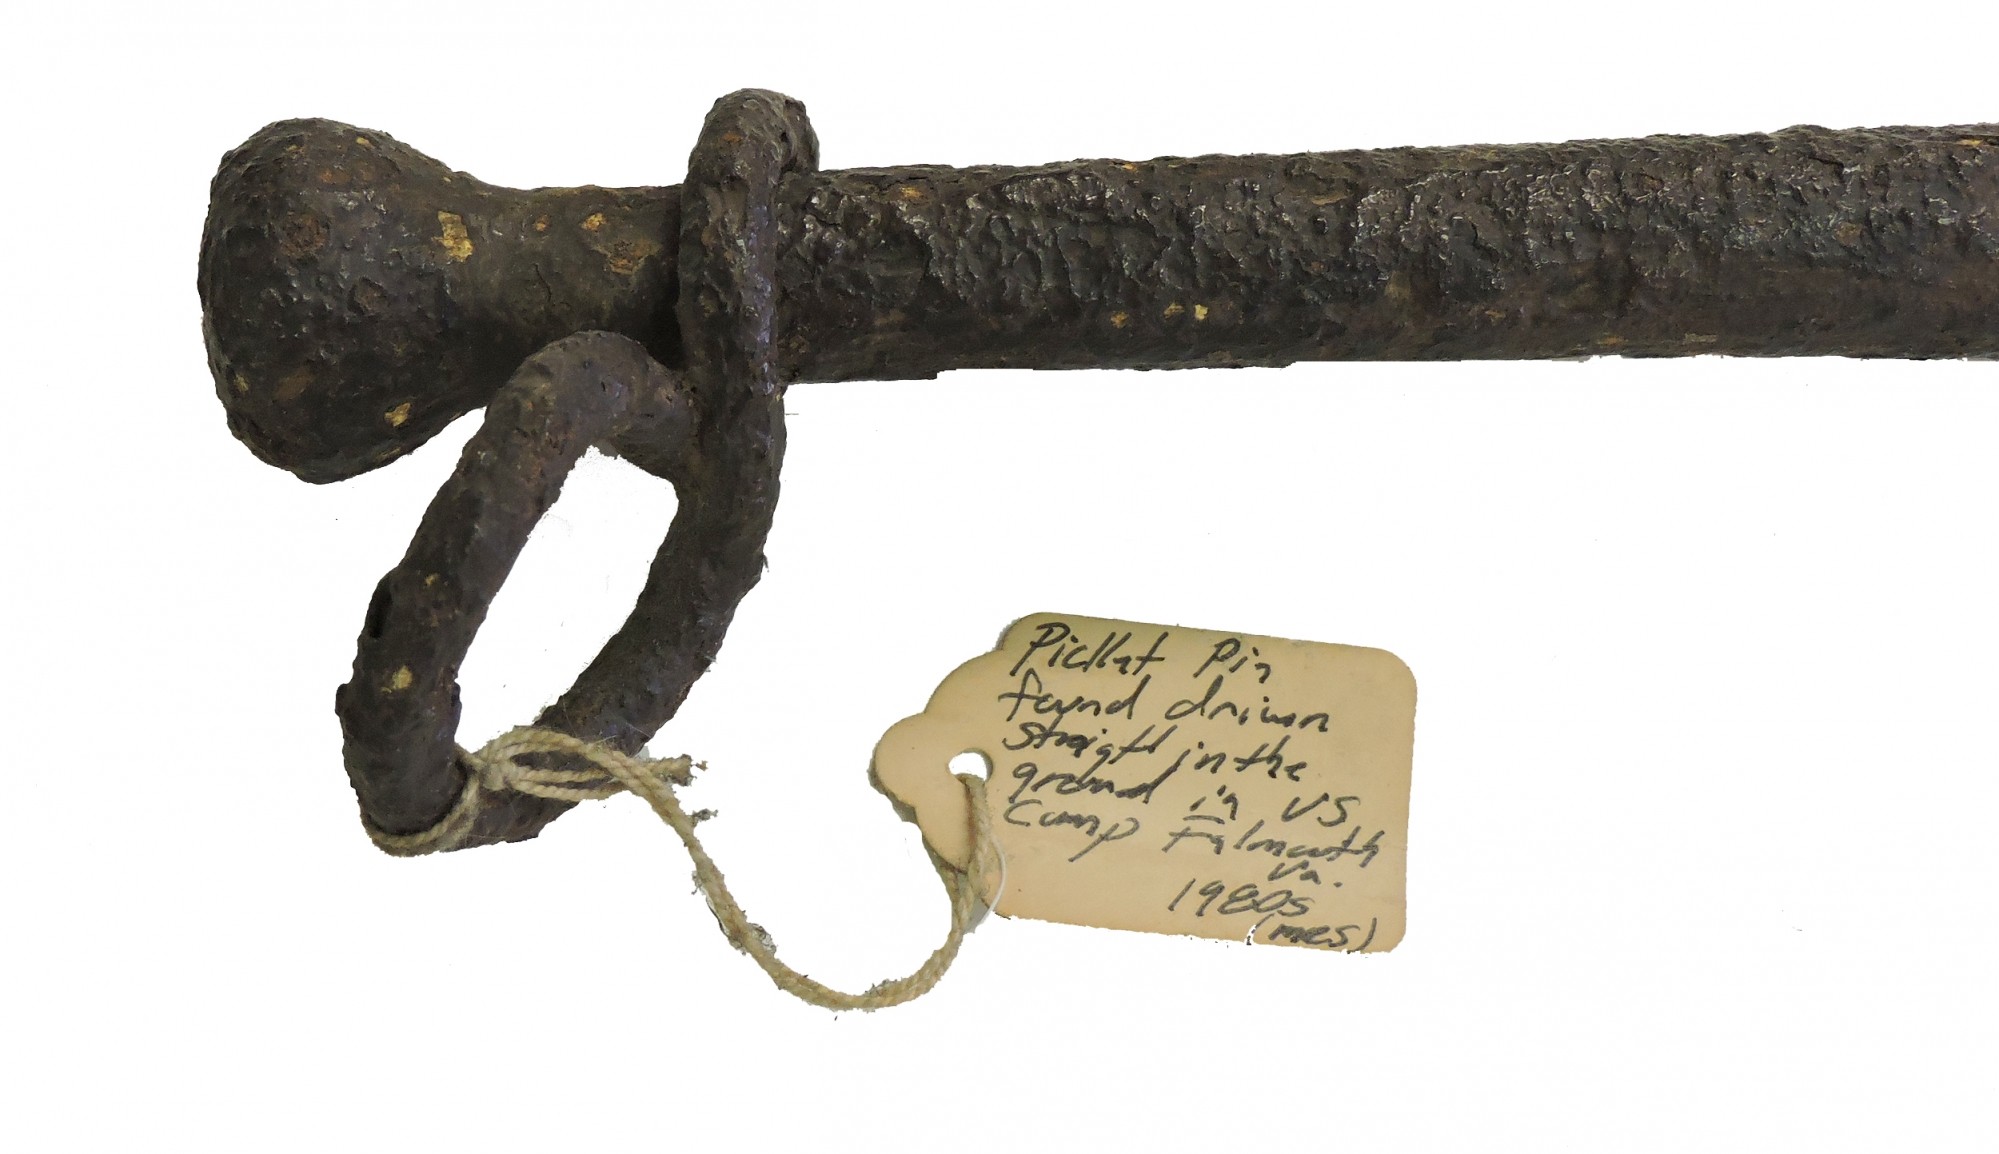 Picket Pin
found driven
straight in the
ground in US
Camp Falmouth
Va.
1980s
(mes)